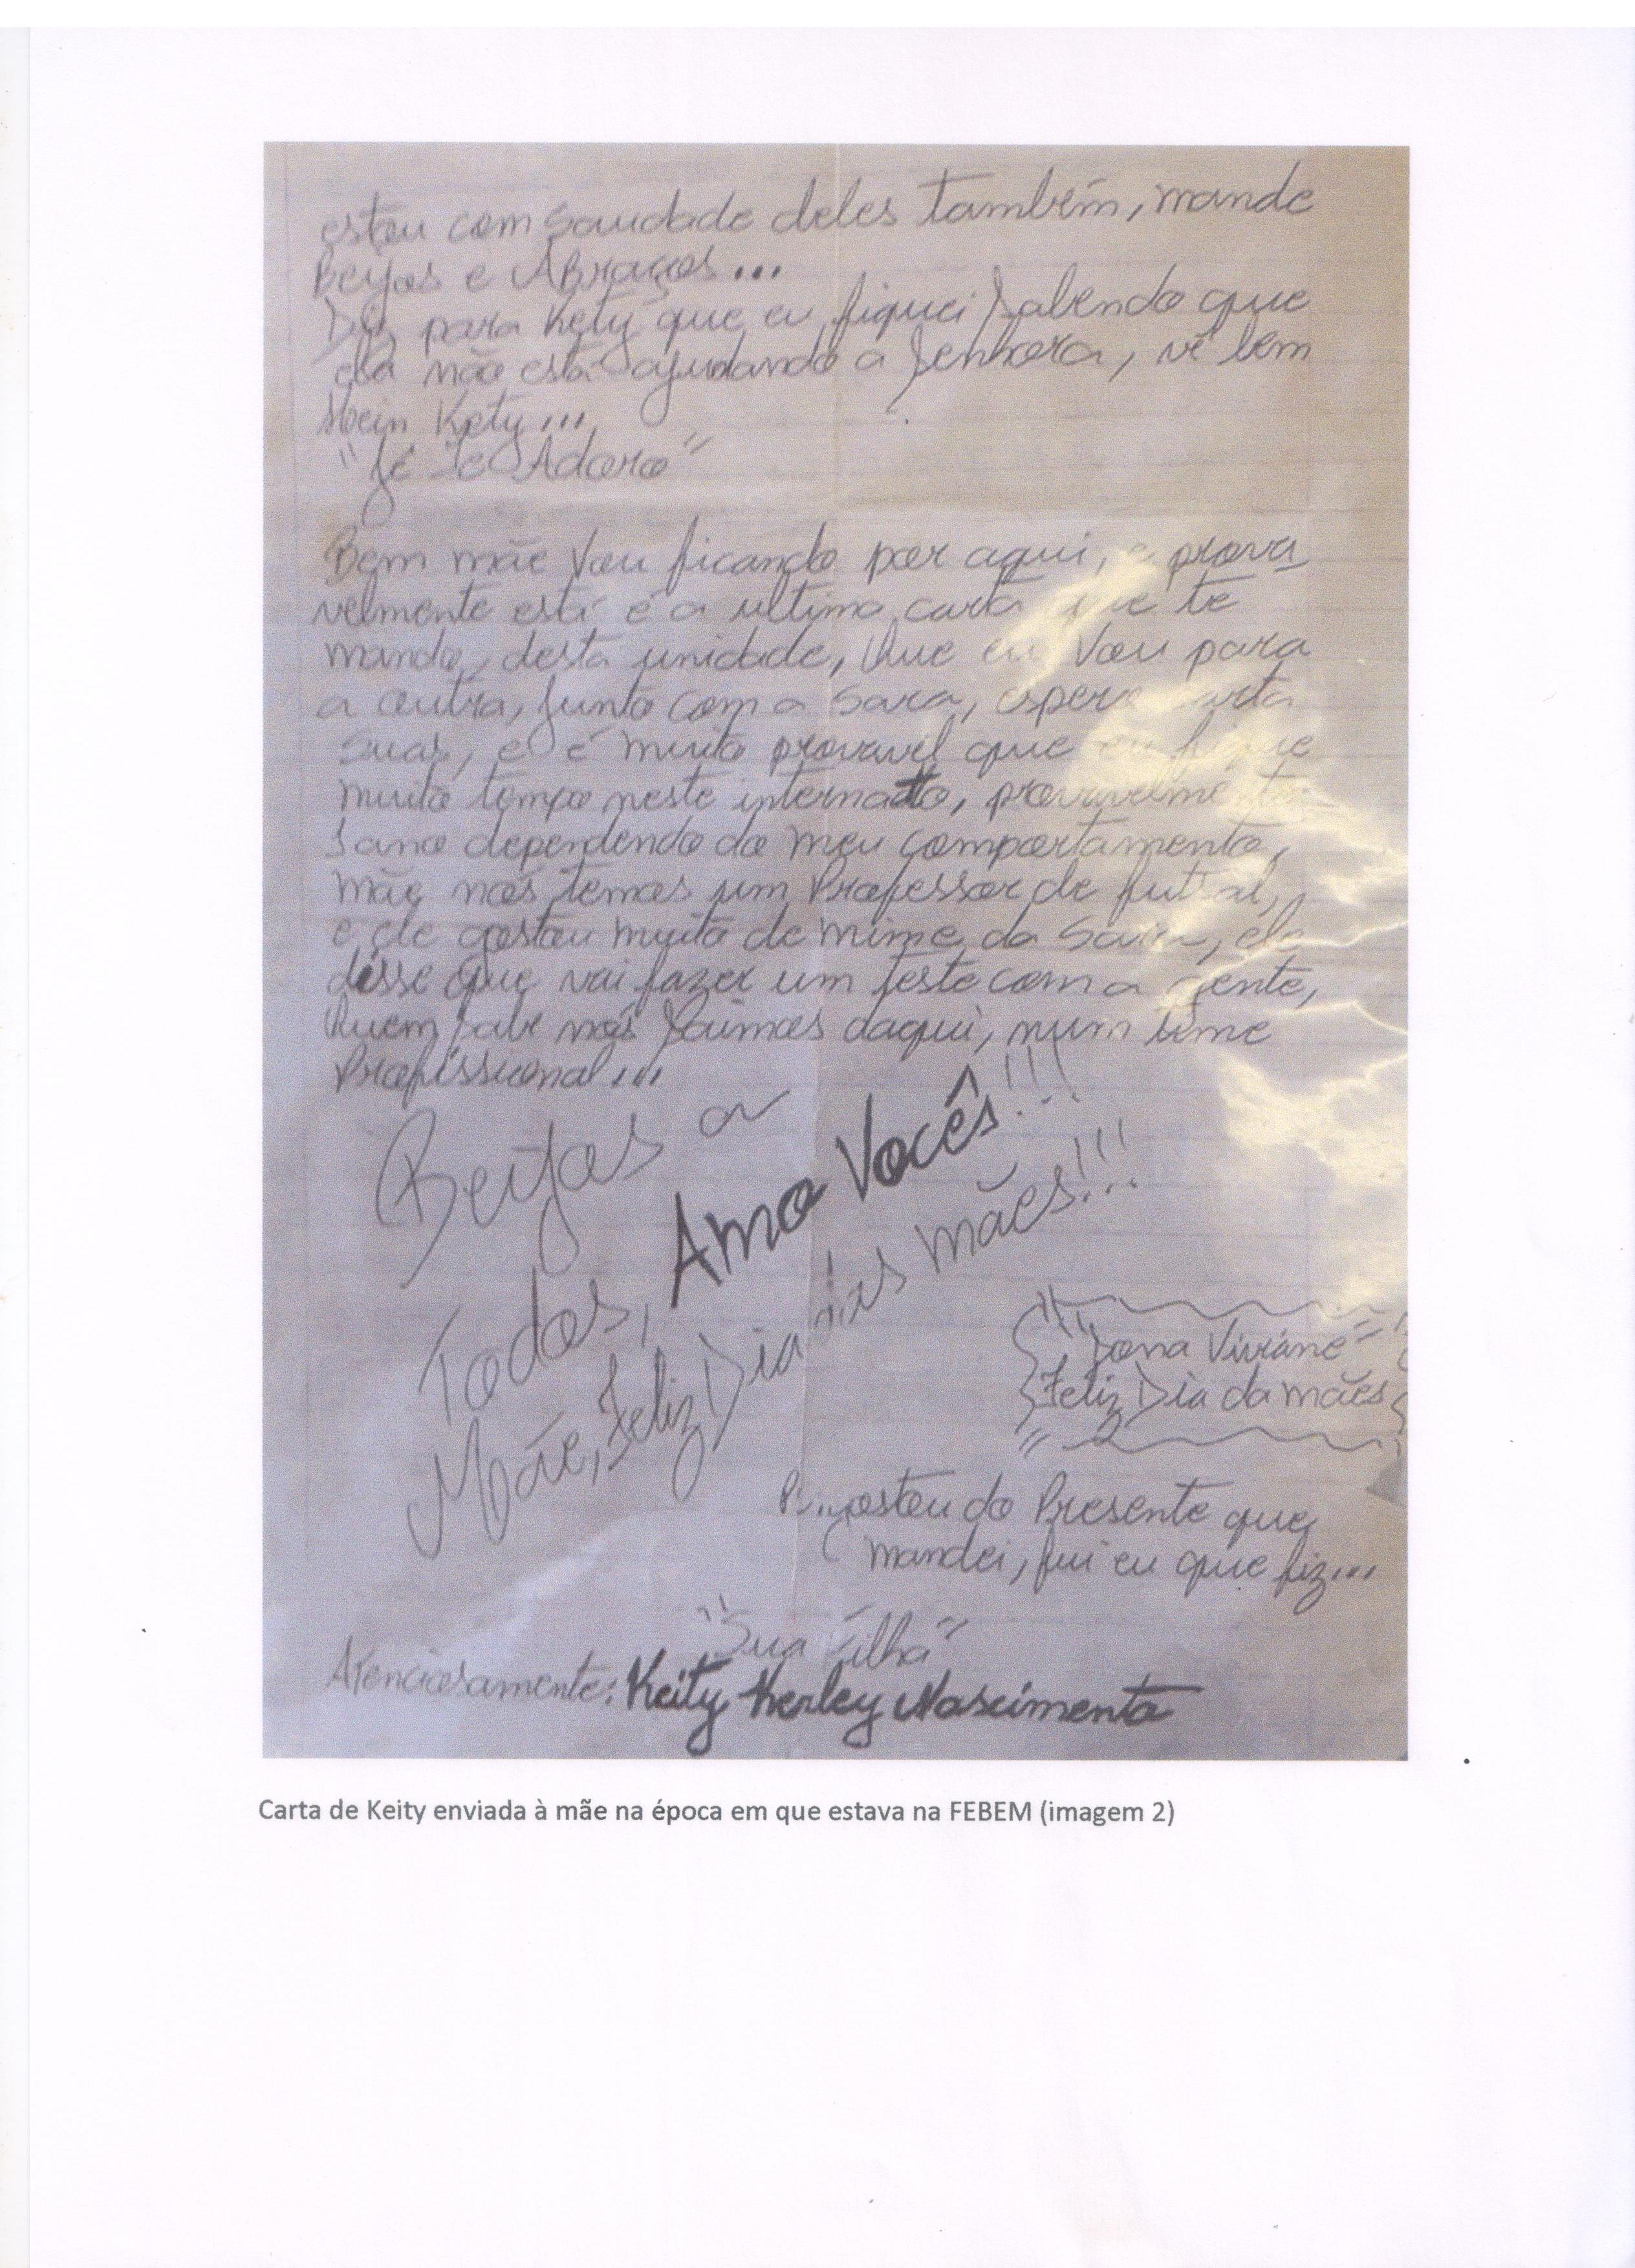 estou com saudade deles também, mande
Beijos e ABraços...
Diz para Kety que eu fiquei sabendo que
ela não está ajudando a senhora, vê bem
Hein Kety...
"Te Adoro"
Bem mãe vou ficando por aqui, e prova
velmente está é a ultima carta que te
mando, desta unidade, Que eu vou para
a outra, junto com a Sara, espero carta
suas, e é muito provavel que eu fique
muito tempo neste internatto, provavelmente
1 ano dependendo do meu comportamento,
mãe nós temos um Professor de futsal,
e ele gostou muito de mim e da Sara, ele
disse que vai fazer um teste com a gente,
Quem sabe nós saimos daqui, num time
Profissional...
Beijos a
Todos, Amo Vocês!!!
Mãe, Feliz Dia das mães!!!
"Dona Viviane"
Feliz Dia da mães
gostou do Presente que
mandei, fui eu que fiz...
"Sua Filha"
Atenciosamente: Keity Kerley Nascimento
Carta de Keity enviada à mãe na época em que estava na FEBEM (imagem 2)